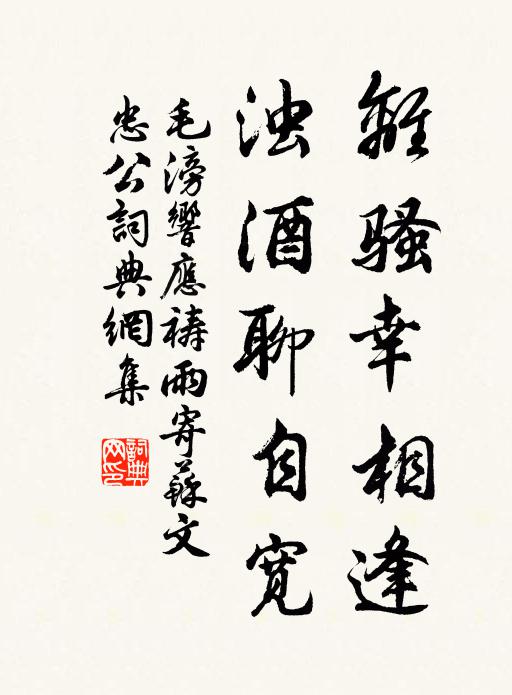 離騷幸相逢
浊酒聊自宽
毛滂響應禱雨寄蘇文
忠公詞典網集
詞典
网印